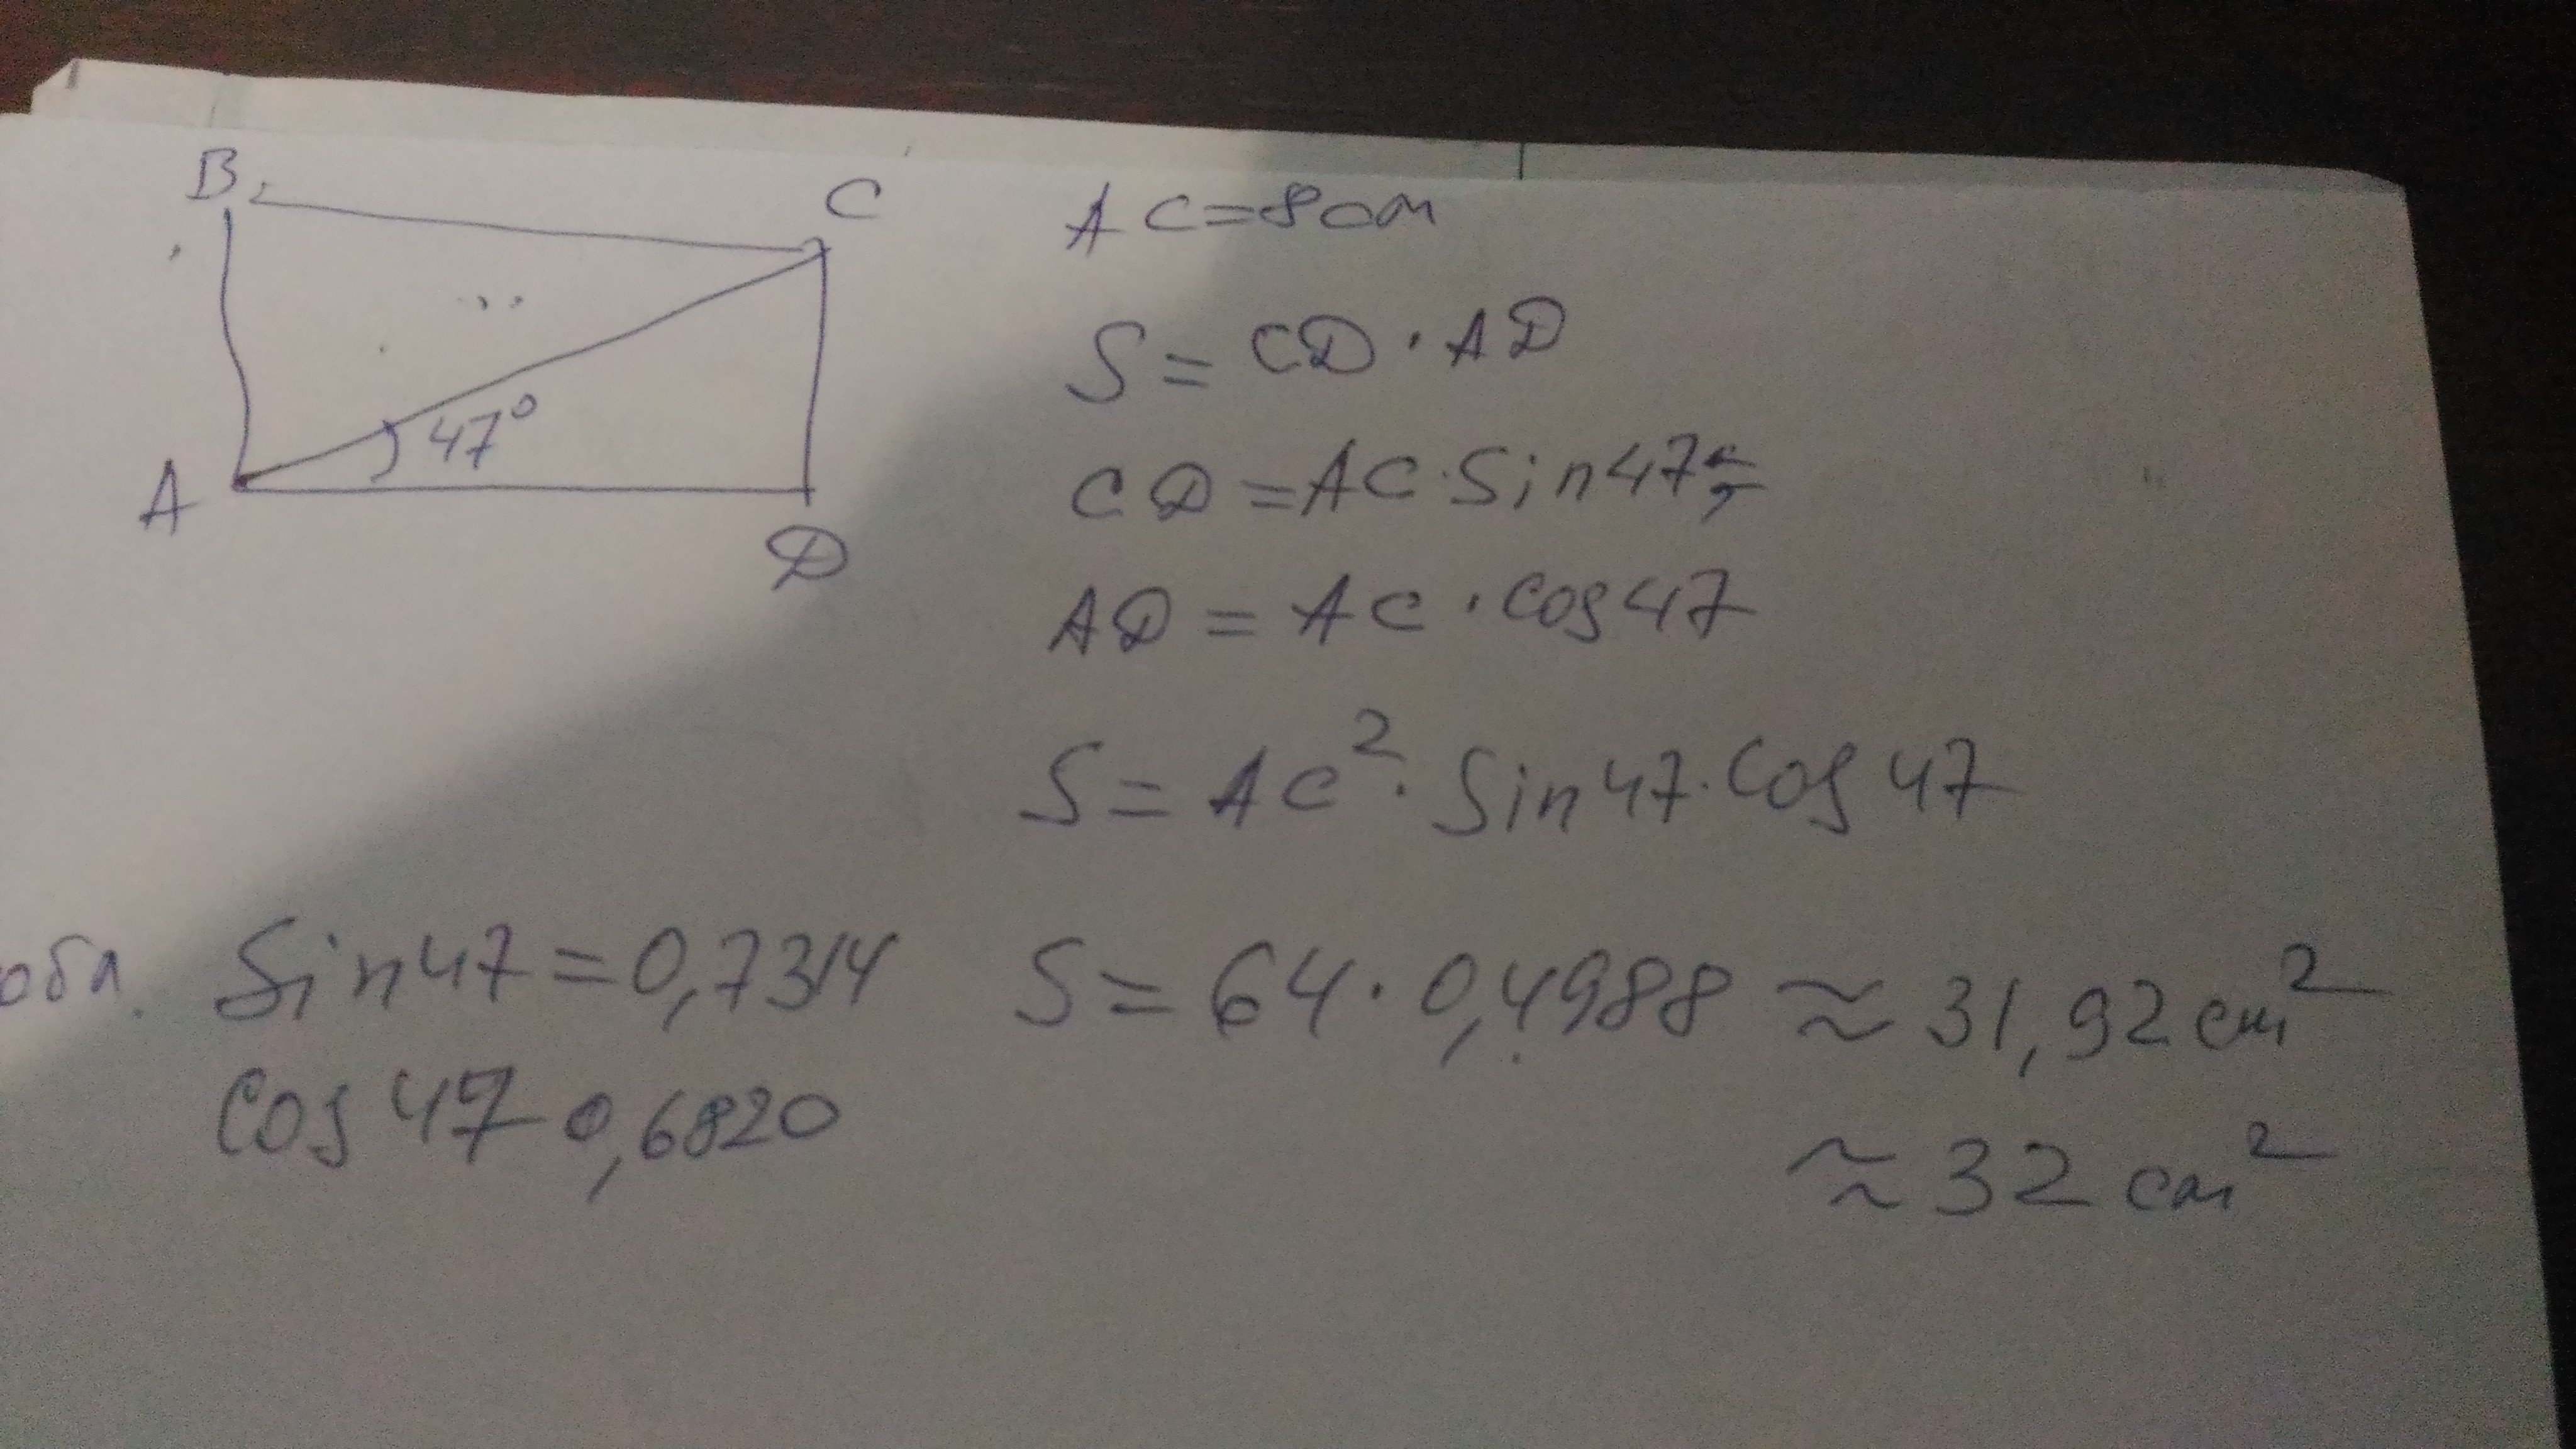 B
C
47°
A
D
AC=8см
S = CD · AD
CD = AC · Sin47=
AD = AC · cos47
S = AC² · Sin47 · Cos47
Sin47=0,7314
Cos47 0,6820
S = 64 · 0,4988 ≈ 31,92 см²
≈ 32 см²